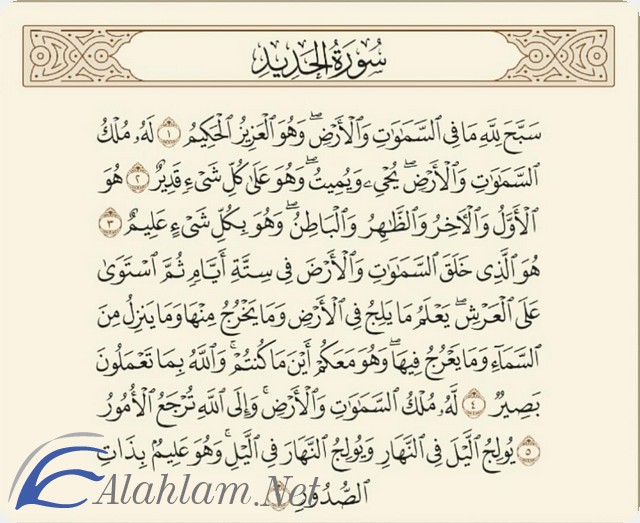 سُورَةُ الحَدِيدِ
سَبَّحَ لِلَّهِ مَا فِي السَّمَٰوَٰتِ وَالْأَرْضِ ۖ وَهُوَ الْعَزِيزُ الْحَكِيمُ ١ لَهُۥ مُلْكُ
السَّمَٰوَٰتِ وَالْأَرْضِ ۖ يُحْيِۦ وَيُمِيتُ ۖ وَهُوَ عَلَىٰ كُلِّ شَيْءٍ قَدِيرٌ ٢ هُوَ
الْأَوَّلُ وَالْآخِرُ وَالظَّاهِرُ وَالْبَاطِنُ ۖ وَهُوَ بِكُلِّ شَيْءٍ عَلِيمٌ ٣
هُوَ الَّذِي خَلَقَ السَّمَٰوَٰتِ وَالْأَرْضَ فِي سِتَّةِ أَيَّامٍ ثُمَّ اسْتَوَىٰ
عَلَى الْعَرْشِ ۖ يَعْلَمُ مَا يَلِجُ فِي الْأَرْضِ وَمَا يَخْرُجُ مِنْهَا وَمَا يَنزِلُ مِنَ
السَّمَاءِ وَمَا يَعْرُجُ فِيهَا ۖ وَهُوَ مَعَكُمْ أَيْنَ مَا كُنتُمْ ۚ وَاللَّهُ بِمَا تَعْمَلُونَ
بَصِيرٌ ٤ لَّهُۥ مُلْكُ السَّمَٰوَٰتِ وَالْأَرْضِ ۚ وَإِلَى اللَّهِ تُرْجَعُ الْأُمُورُ
٥ يُولِجُ اللَّيْلَ فِي النَّهَارِ وَيُولِجُ النَّهَارَ فِي اللَّيْلِ ۚ وَهُوَ عَلِيمٌ بِذَاتِ
الصُّدُورِ
Alahlam.Net